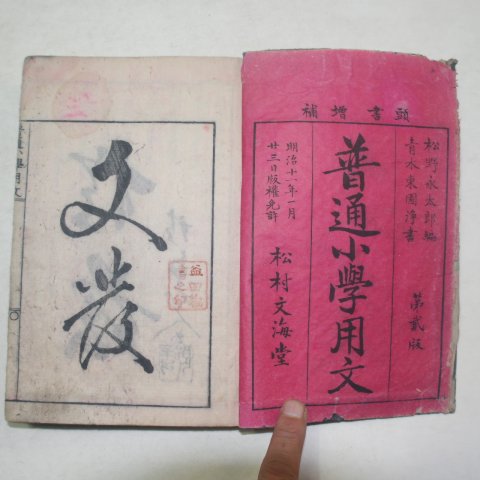 頭書增補
松野永太郎編
青木東園浄書
普通小學用文
第貳版
明治十一年一月
廿三日版權免許
松村文海堂
文叢